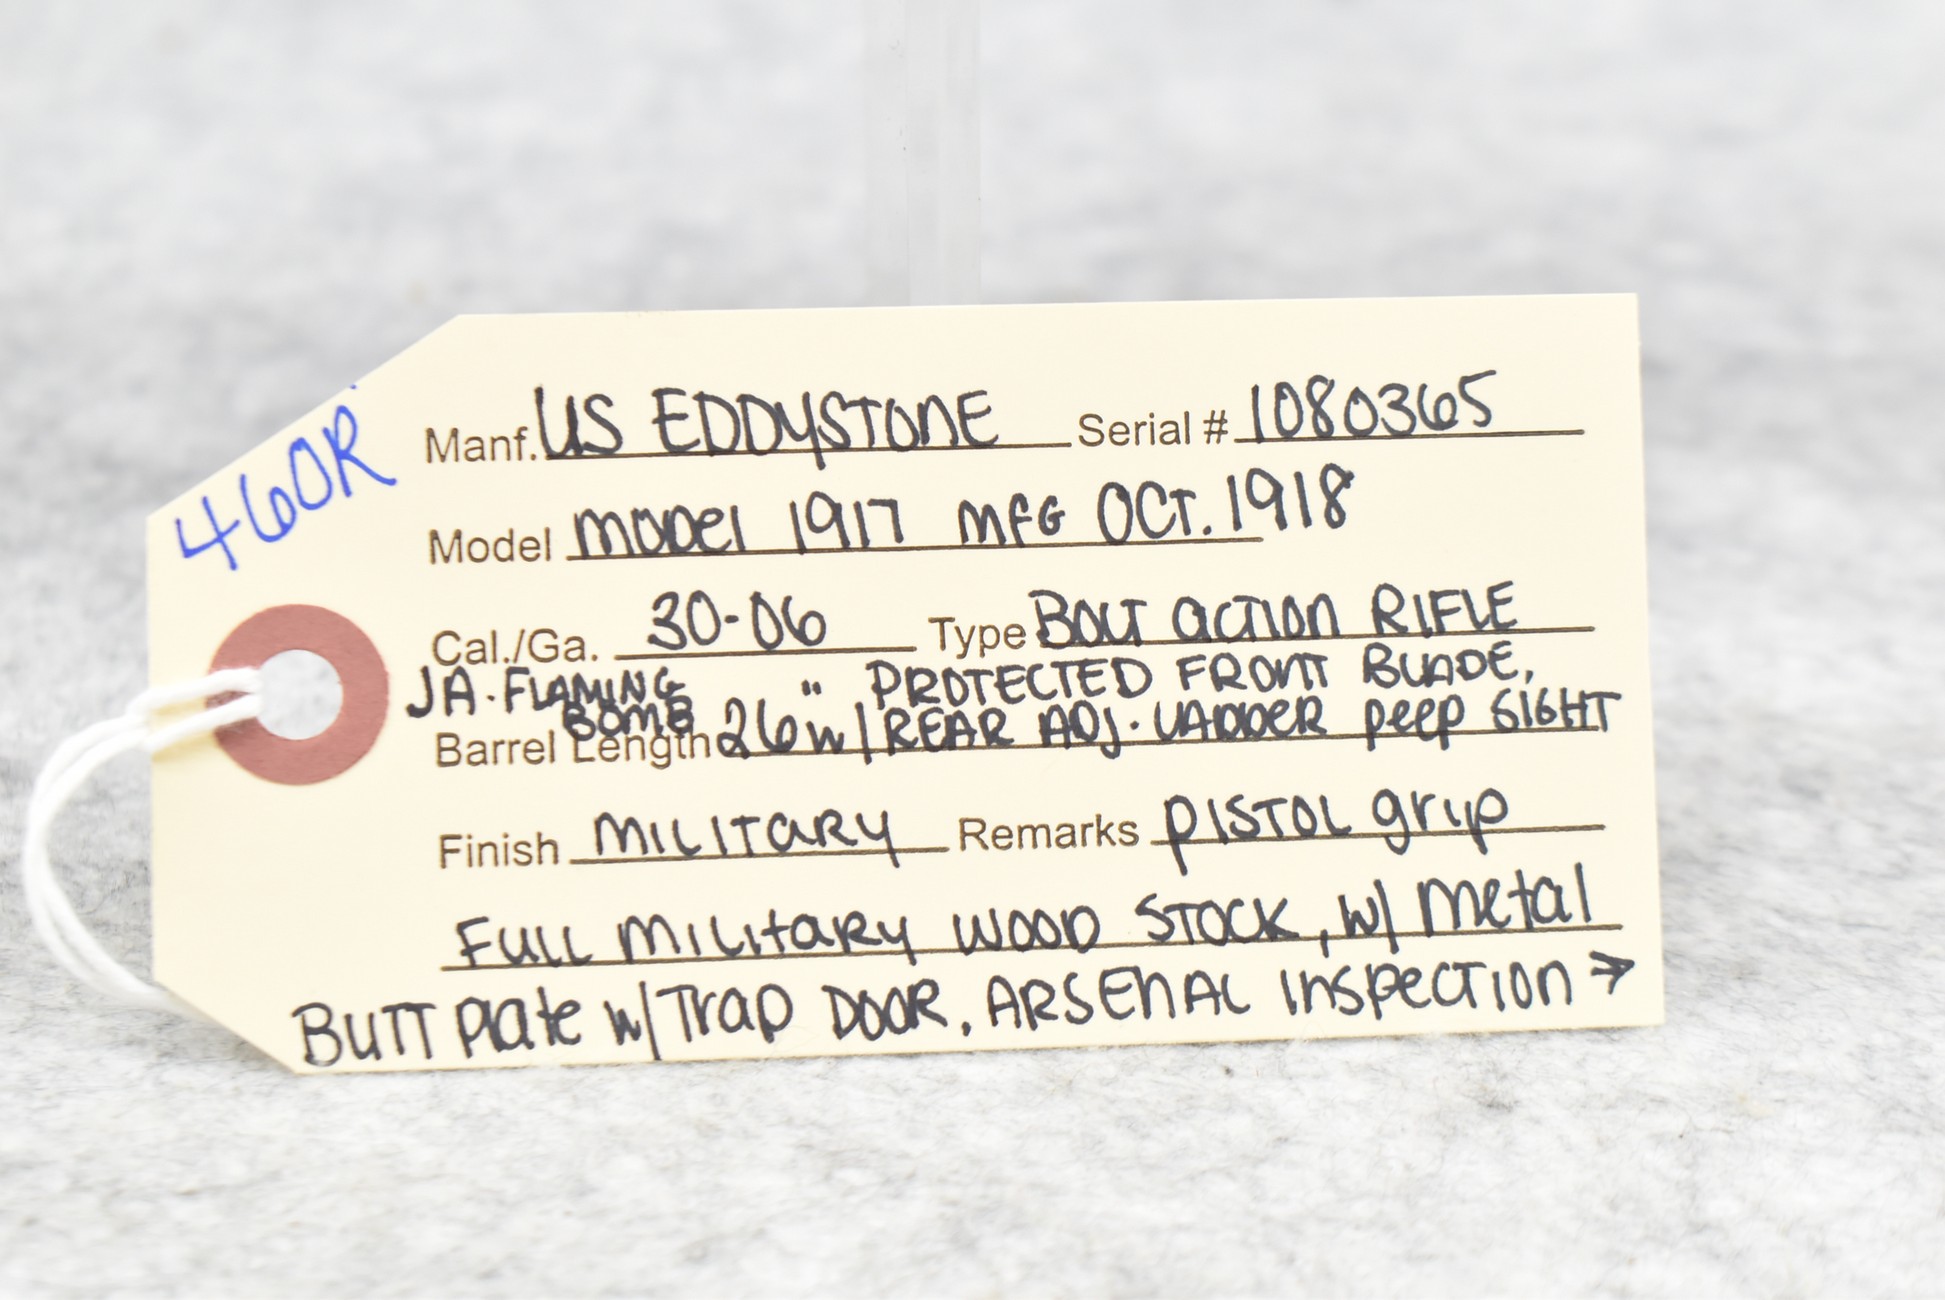 460R
Manf. US EDDYSTONE Serial # 1080365
Model MODEl 1917 MFG OCT. 1918
Cal./Ga. 30-06 Type BOLT ACTION RIFLE
JA. FLAMING BOMB
PROTECTED FRONT BLADE,
Barrel Length 26" w/ REAR ADJ. LADDER PEEP SIGHT
Finish MILITARY Remarks PISTOL grip
FULL MILITARY WOOD STOCK, W/ Metal
BUTT Plate w/ Trap DOOR, ARSENAL INSPECTION →